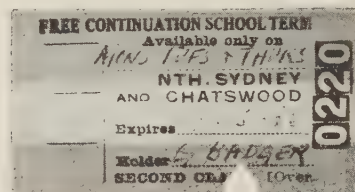 FREE CONTINUATION SCHOOL TERM
Available only on
TUES & THURS
NTH. SYDNEY
AND CHATSWOOD
Expires
Holder BADGER
SECOND [Over
0220